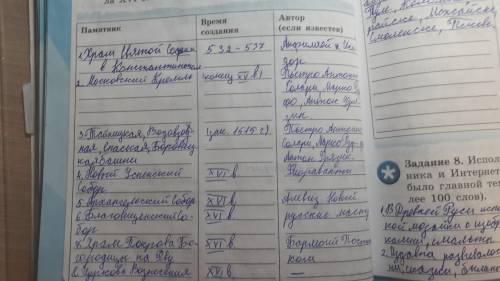 ла XVI
Памятник
Время
создания
Автор
(если известен)
1. Храм Святой Софии
в Константинополе
532-537
Анфимий и Иси
дор
2. Московский Кремль
конец XV в)
Пьетро Антонио
Солари, Марко Ру
фо, Антон Фря
зин.
3. Тайницкая, Водовзвод
ная, Спасская, Боровиц
кая башни
Пьетро Антонио
Солари, Марко Руф
Антон Фрязин.
4. Новый Успенский
Собор
XVI в
Фиораванти
5 Архангельский Собор
XVI в
Алевиз Новый
6 Благовещенский со-
бор
XVI в
русские масте
Храм Покрова Бо-
городицы на Рву
XVI в
Бармой Пост
8. Церковь Вознесения
XVI в
—
Смоленске, Пскове,
Задание 8. Испол
ника и Интернет
было главной тем
лее 100 слов).
1. В Древней Руси
ной мозаики
камня, смальты
2. Издавна развивалос